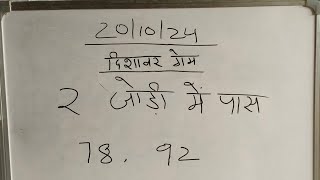 20/10/24
दिशावर गेम
2 जोड़ी में पास
78. 92